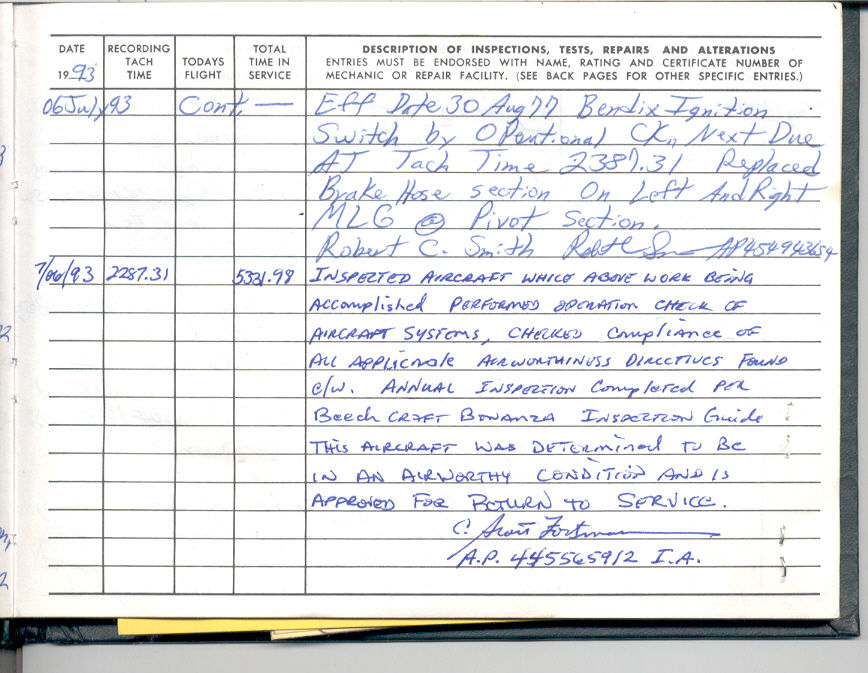 DATE RECORDING TACH TIME TODAYS FLIGHT TOTAL TIME IN SERVICE DESCRIPTION OF INSPECTIONS, TESTS, REPAIRS AND ALTERATIONS
1993 ENTRIES MUST BE ENDORSED WITH NAME, RATING AND CERTIFICATE NUMBER OF
MECHANIC OR REPAIR FACILITY. (SEE BACK PAGES FOR OTHER SPECIFIC ENTRIES.)
06 July 93 Cont. — Eff Date 30 Aug 77 Bendix Ignition
Switch by OPerational CK,, Next Due
AT Tach Time 2387.31 Replaced
Brake Hose section On Left And Right
MLG @ Pivot Section.
Robert C. Smith AP454943654
7/06/93 2287.31 5321.98 INSPECTED AIRCRAFT WHILE ABOVE WORK BEING
Accomplished PERFORMED OPERATION CHECK OF
AIRCRAFT SYSTEMS, CHECKED Compliance OF
ALL APPLICABLE AIRWORTHINESS DIRECTIVES FOUND
C/W. ANNUAL INSPECTION Completed PER
BeechCRAFT BONANZA INSPECTION Guide
THIS AIRCRAFT WAS DETERMINED TO BE
IN AN AIRWORTHY CONDITION AND IS
APPROVED FOR RETURN TO SERVICE.
C. Scott
A.P. 445565912 I.A.